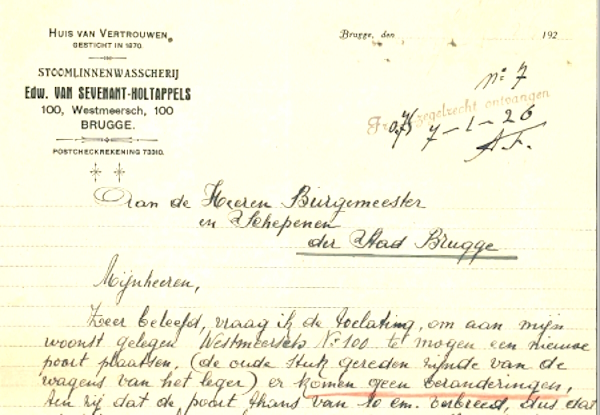 HUIS VAN VERTROUWEN.
GESTICHT IN 1870.
STOOMLINNENWASSCHERIJ
Edw. VAN SEVENANT-HOLTAPPELS
100, Westmeersch, 100
BRUGGE.
POSTCHECKREKENING 73310.
Brugge, den 192
No 7
zegelrecht ontvangen
7-1-26
Aan de Heeren Burgemeester
en Schepenen
der Stad Brugge
Mijnheeren,
Zeer beleefd, vraag ik de toelating, om aan mijn
woonst gelegen Westmeersch No 100 te mogen een nieuwe
poort plaatsen, (de oude stuk gereden zijnde van de
wagens van het leger) er komen geen veranderingen,
ten zij dat de poort thans van 10 cm. verbreed, dus dat